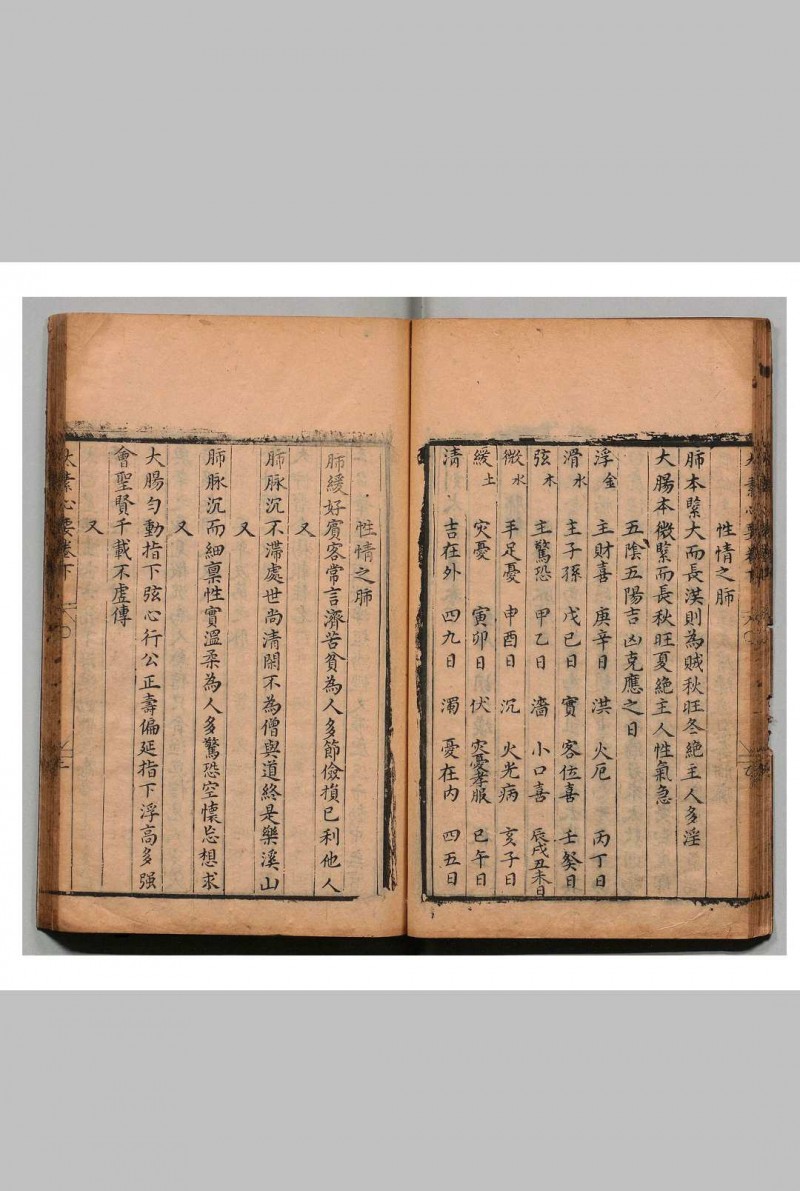 性情之肺
肺本緊大而長洪則為賊秋旺冬絶主人多淫
大腸本微緊而長秋旺夏絶主人性氣急
五陰五陽吉凶克應之日
浮金　主財喜　庚辛日　洪　火厄　丙丁日
滑水　主子孫　戊巳日　實　客位喜　壬癸日
弦木　主驚恐　甲乙日　濇　小口喜　辰戌丑未日
微水　手足憂　申酉日　沉　火光病　亥子日
緩土　灾憂　寅卯日　伏　灾憂孝服　巳午日
清　吉在外　四九日　濁　憂在内　四五日
性情之肺
肺緩好賓客常言濟苦貧為人多節儉損已利他人
又
肺脉沉不滯處世尚清閑不為僧與道終是樂溪山
又
肺脉沉而細禀性實溫柔為人多驚恐空懷忘想求
又
大腸勻動指下弦心行公正壽偏延指下浮高多强
會聖賢千載不虚傳
又
太素心要卷下